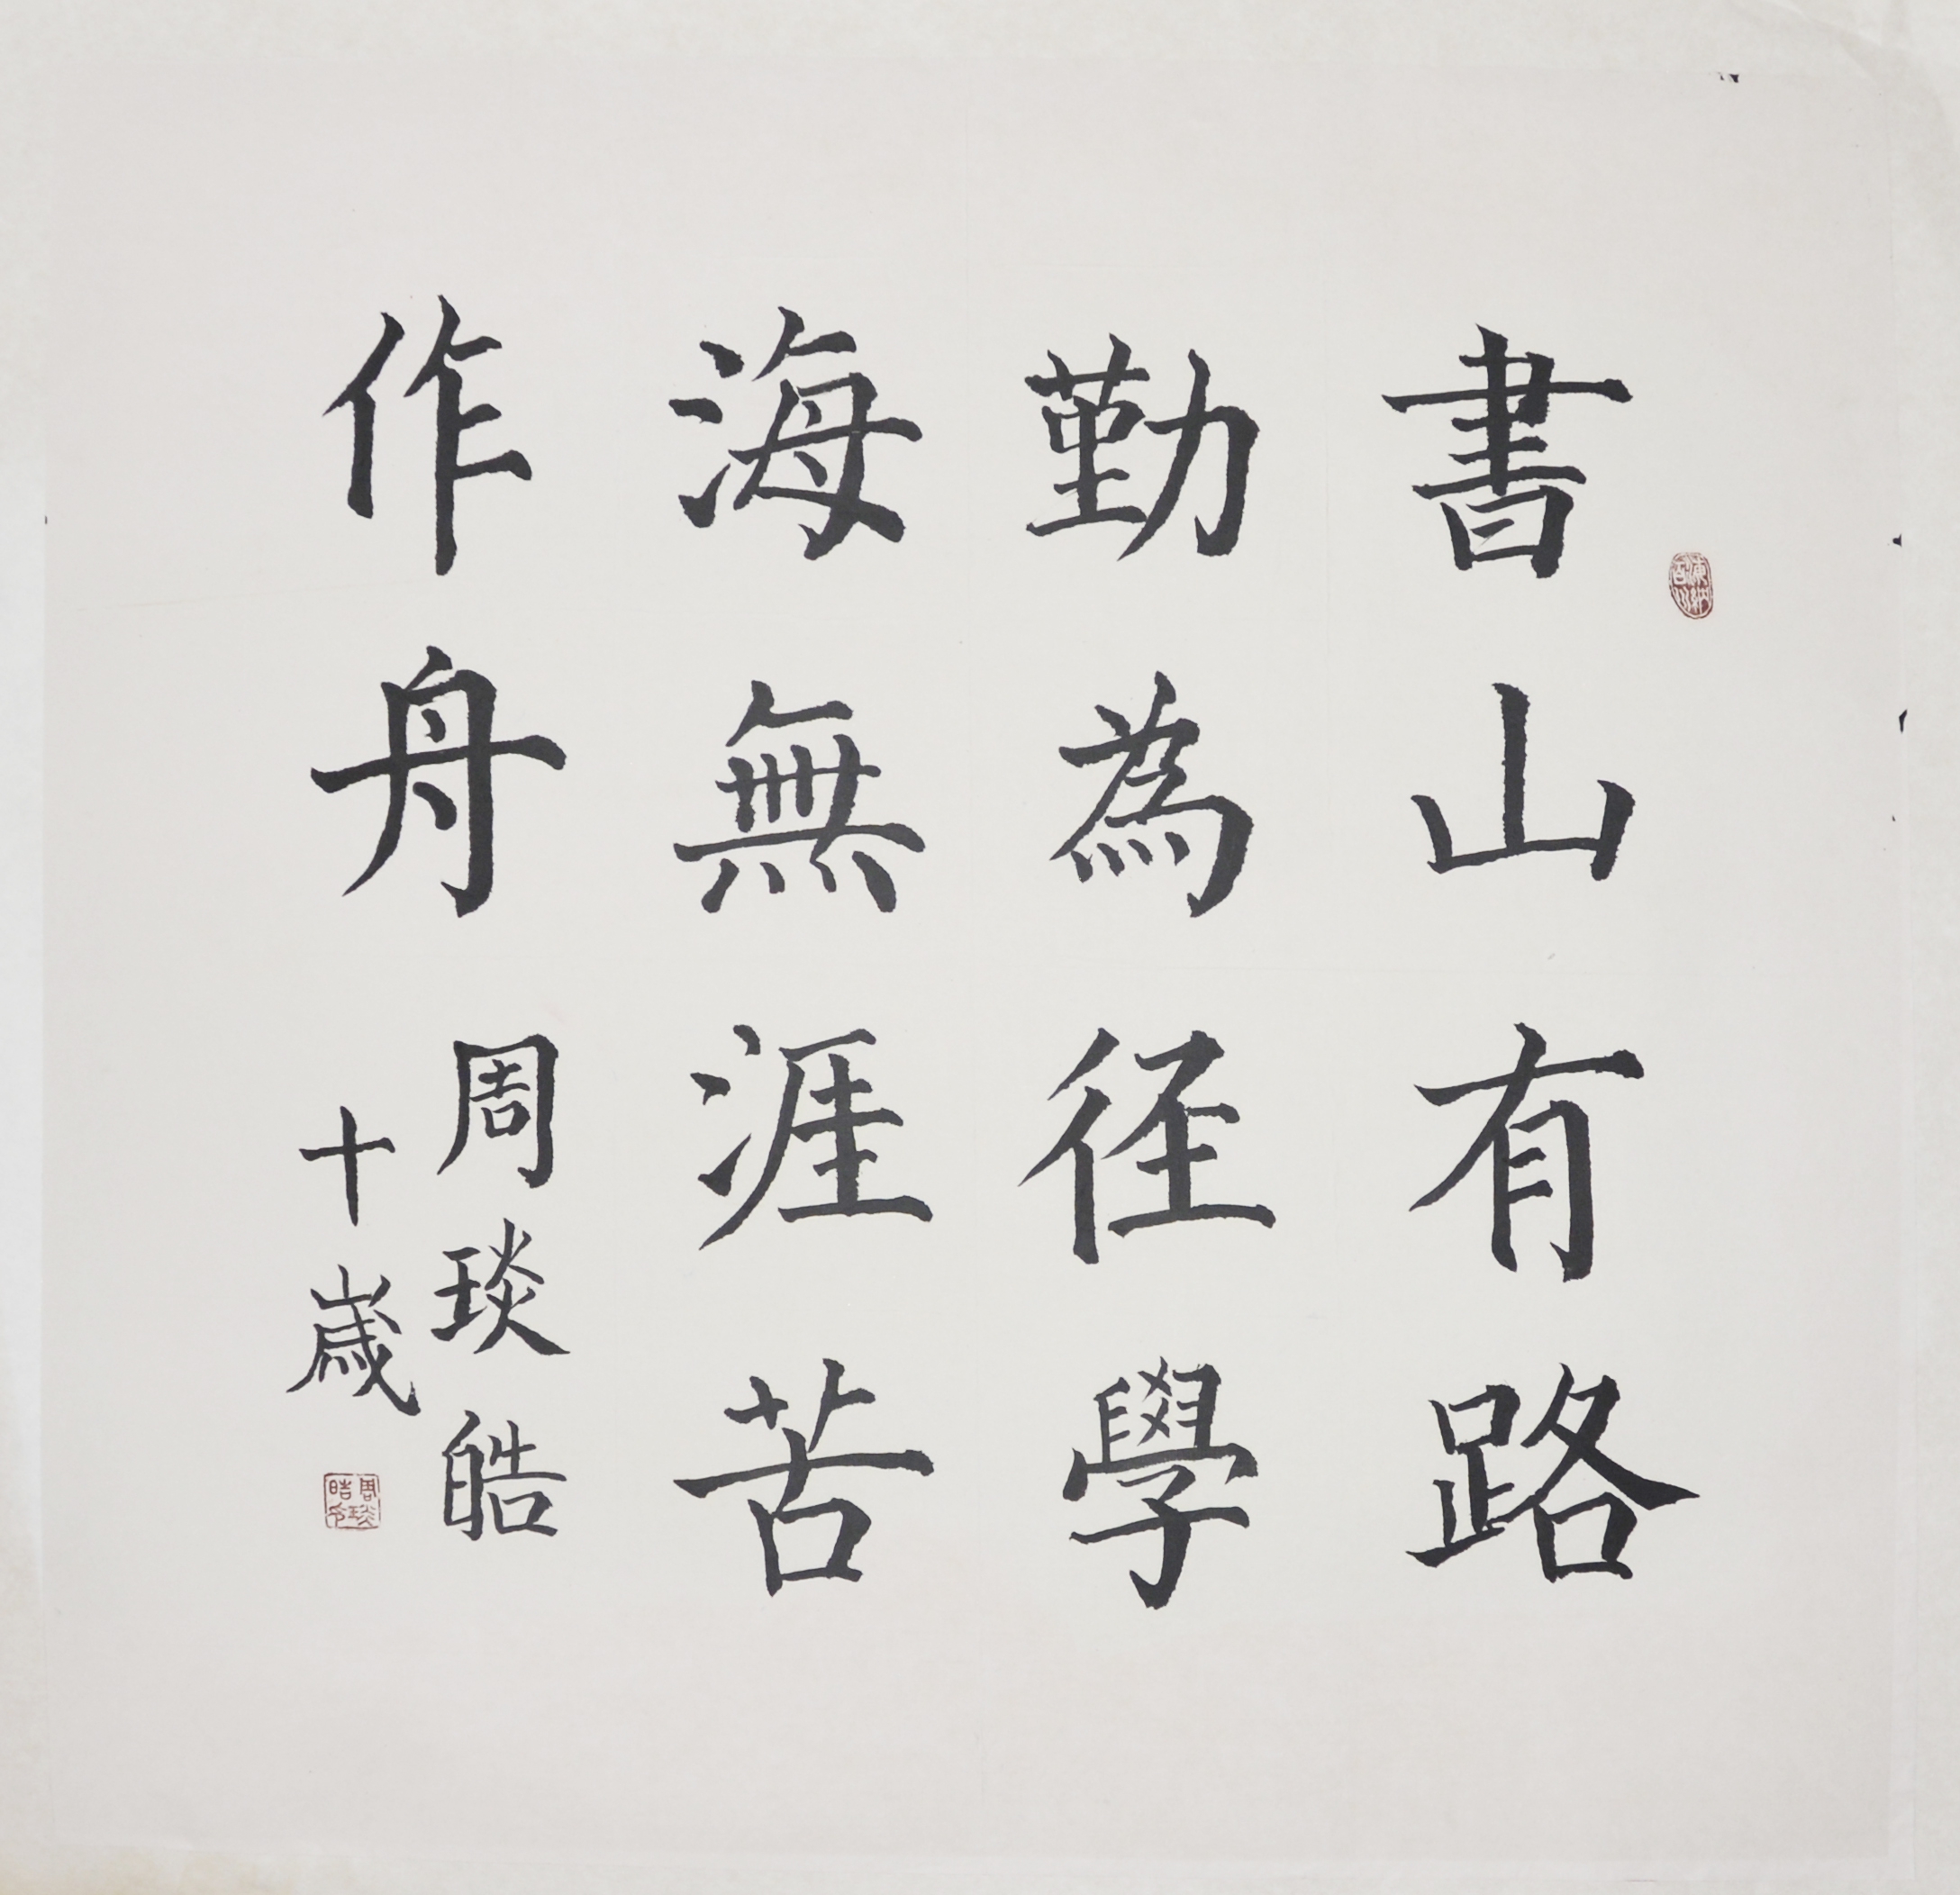 書山有路
勤為径學
海無涯苦
作舟
周琰皓
十歲
周琰皓印